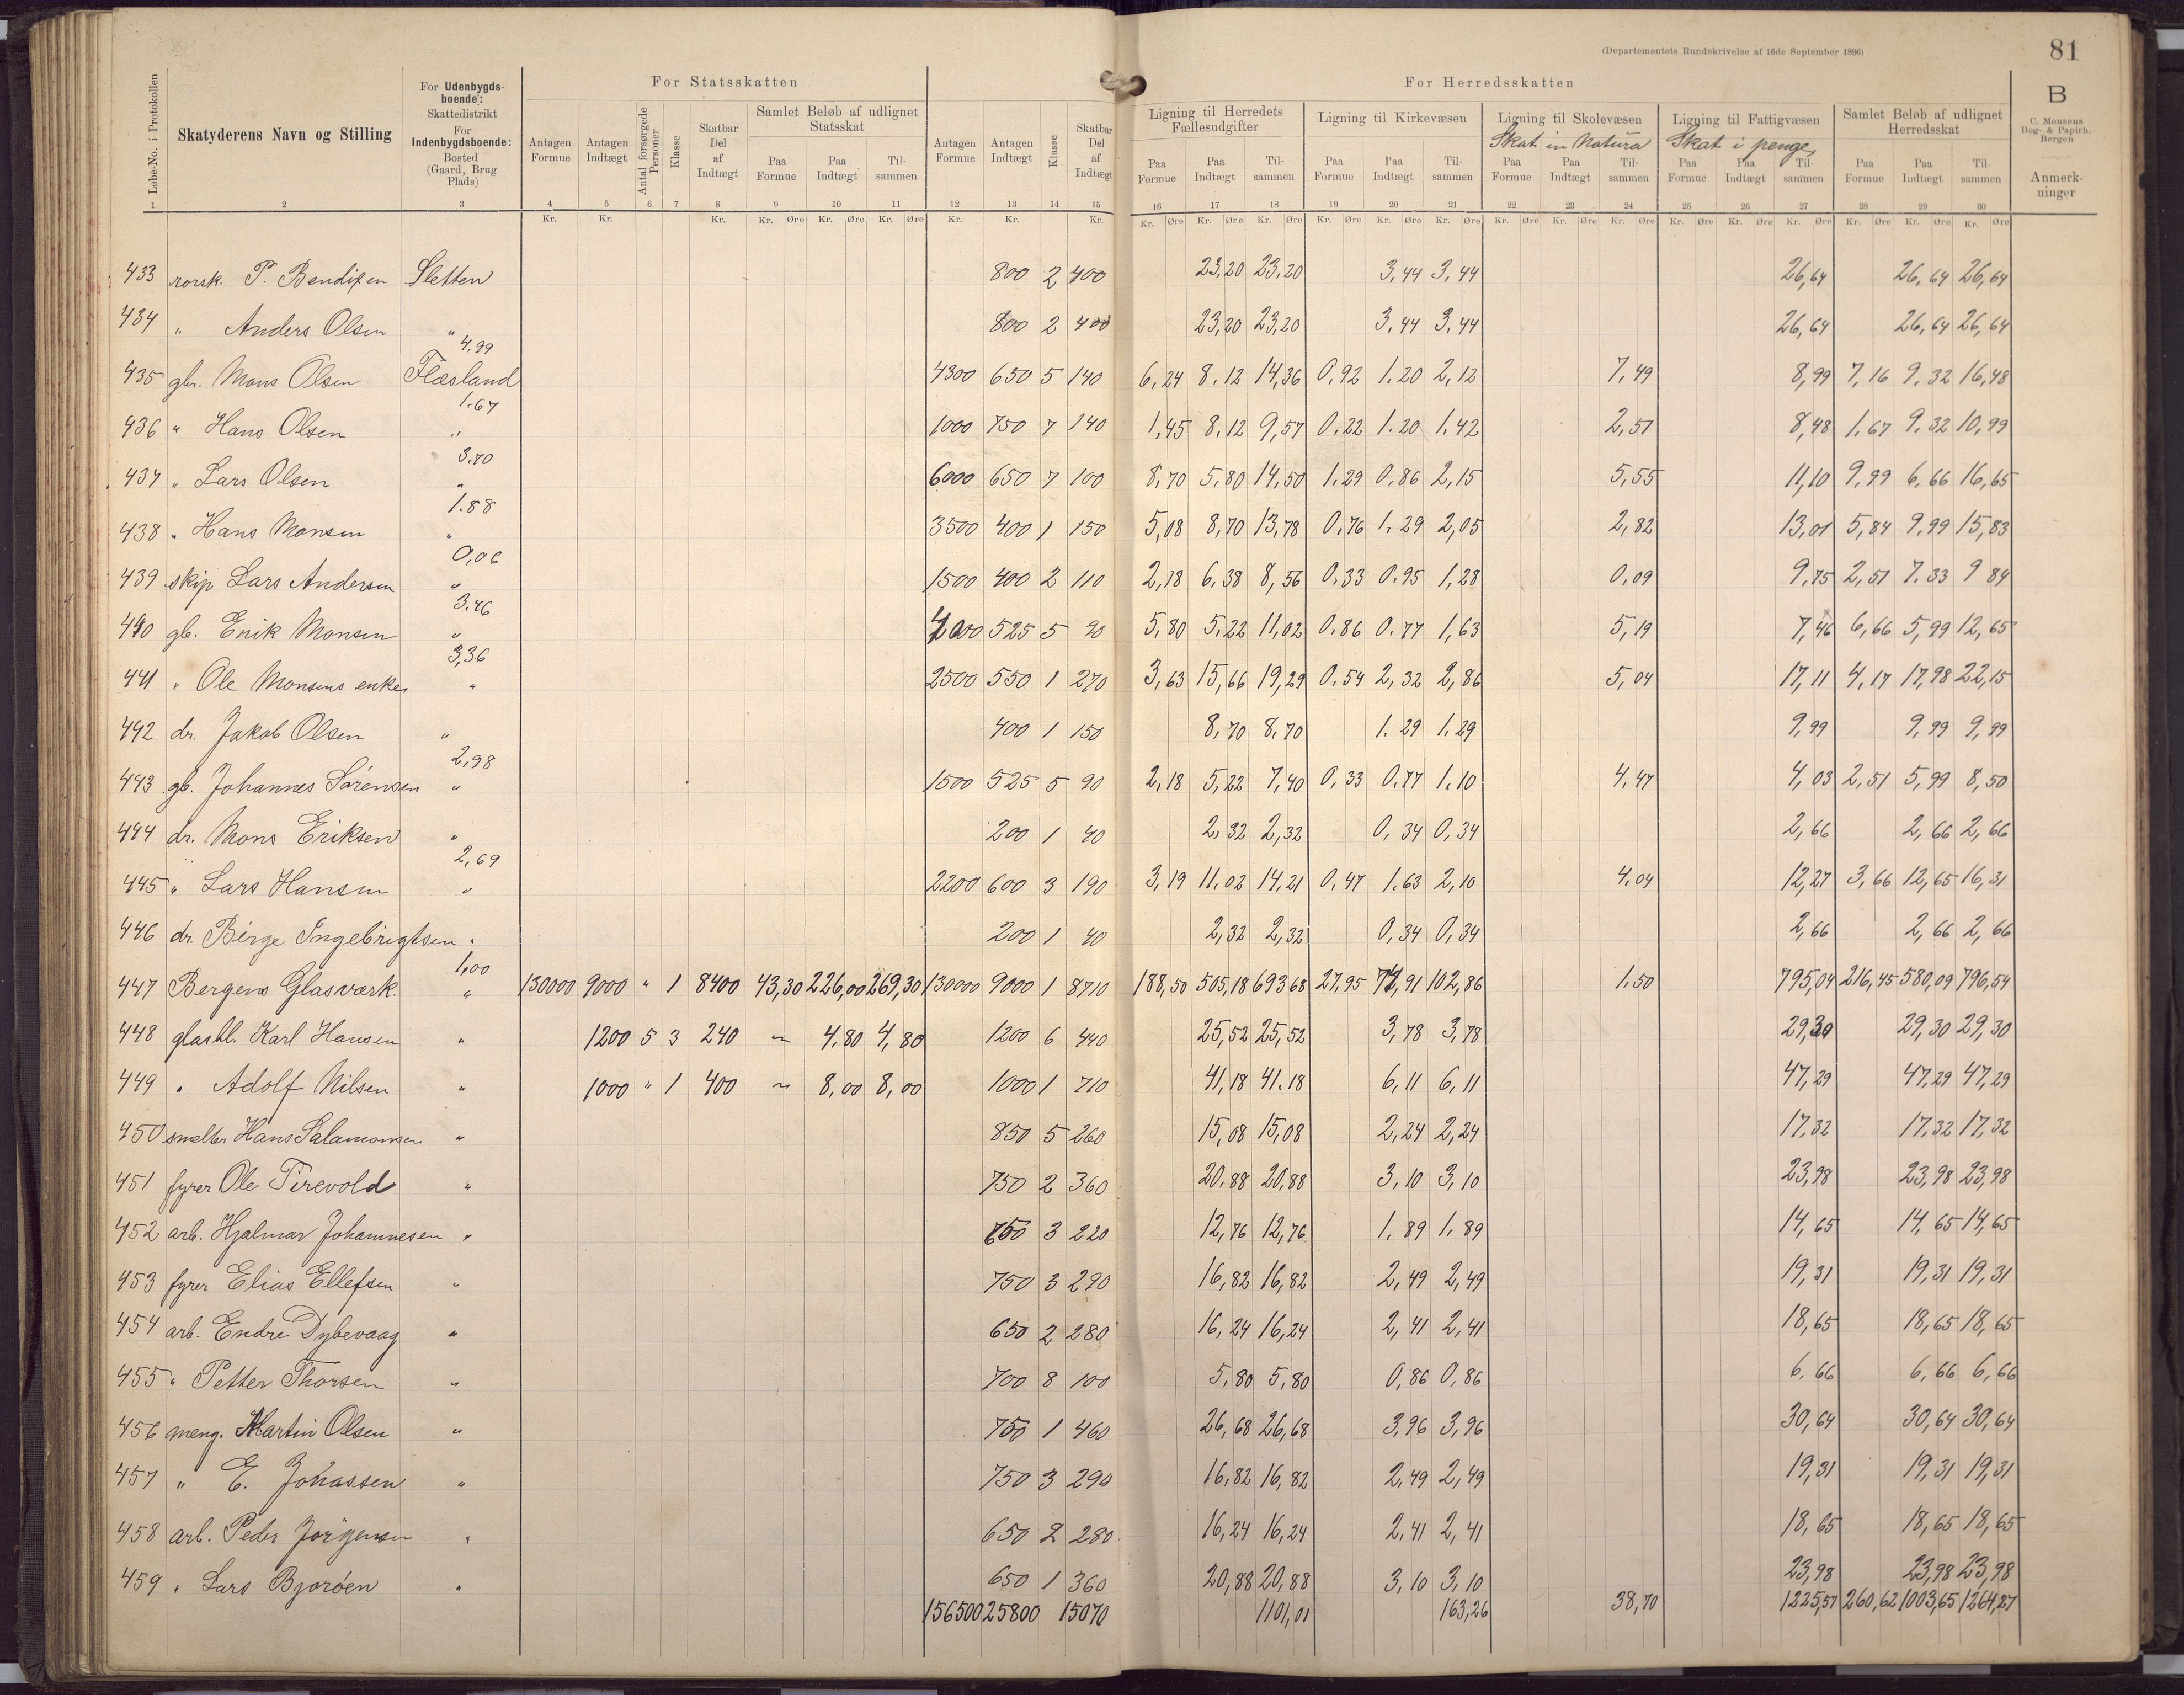 (Departementets Rundskrivelse af 16de September 1896)
81
B
C. Monsens Bog- & Papirh. Bergen
For Statsskatten
For Herredsskatten
Løbe-No. i Protokollen
Skatyderens Navn og Stilling
For Udenbygdsboende: Skattedistrikt For Indenbygdsboende: Bosted (Gaard, Brug Plads)
Antagen Formue
Antagen Indtægt
Antal forsørgede Personer
Klasse
Skatbar Del af Indtægt
Samlet Beløb af udlignet Statsskat
Paa Formue
Paa Indtægt
Tilsammen
Antagen Formue
Antagen Indtægt
Klasse
Skatbar Del af Indtægt
Ligning til Herredets Fællesudgifter
Paa Formue
Paa Indtægt
Tilsammen
Ligning til Kirkevæsen
Paa Formue
Paa Indtægt
Tilsammen
Ligning til Skolevæsen
Skat in Natura
Paa Formue
Paa Indtægt
Tilsammen
Ligning til Fattigvæsen
Skat i penge
Paa Formue
Paa Indtægt
Tilsammen
Samlet Beløb af udlignet Herredsskat
Paa Formue
Paa Indtægt
Tilsammen
Anmerkninger
1 2 3 4 5 6 7 8 9 10 11 12 13 14 15 16 17 18 19 20 21 22 23 24 25 26 27 28 29 30
433 rorsk. P. Bendixen Sletten 800 2 400 23,20 23,20 3,44 3,44 26,64 26,64 26,64
434 " Anders Olsen " 800 2 400 23,20 23,20 3,44 3,44 26,64 26,64 26,64
4,99
435 gbr. Mons Olsen Flæsland 4300 650 5 140 6,24 8,12 14,36 0,92 1.20 2,12 7,49 8,99 7,16 9,32 16,48
1.67
436 " Hans Olsen " 1000 750 7 140 1,45 8,12 9,57 0,22 1.20 1,42 2,51 8,48 1,67 9.32 10,99
3.70
437 " Lars Olsen " 6000 650 7 100 8,70 5,80 14,50 1,29 0,86 2,15 5,55 11,10 9,99 6,66 16,65
1.88
438 " Hans Monsen " 3500 400 1 150 5,08 8,70 13,78 0,76 1,29 2,05 2,82 13,01 5,84 9,99 15,83
0,06
439 skip Lars Andersen " 1500 400 2 110 2,18 6,38 8,56 0,33 0,95 1,28 0,09 9,75 2,51 7.33 9 84
3.46
440 gb. Erik Monsen " 4000 525 5 90 5,80 5,22 11,02 0,86 0,77 1,63 5,19 7,46 6,66 5,99 12,65
3,36
441 " Ole Monsens enke " 2500 550 1 270 3,63 15,66 19,29 0,54 2,32 2,86 5,04 17,11 4,17 17,98 22,15
442 dr. Jakob Olsen " 400 1 150 8,70 8,70 1.29 1.29 9,99 9,99 9,99
2,98
443 gb. Johannes Sørensen " 1500 525 5 90 2,18 5,22 7,40 0,33 0,77 1,10 4,47 4,03 2,51 5,99 8,50
444 dr. Mons Eriksen " 200 1 40 2,32 2,32 0,34 0,34 2,66 2,66 2,66
2,69
445 " Lars Hansen " 2200 600 3 190 3,19 11.02 14,21 0,47 1,63 2,10 4.04 12,27 3,66 12,65 16,31
446 dr. Birge Ingebrigtsen " 200 1 40 2,32 2,32 0,34 0,34 2,66 2,66 2,66
1,00
447 Bergens Glasværk. " 130000 9000 " 1 8400 43,30 226,00 269,30 130000 9000 1 8710 188,50 505,18 693 68 27,95 74,91 102,86 1.50 795,04 216,45 580,09 796,54
448 glasbl. Karl Hansen " 1200 5 3 240 ~ 4,80 4,80 1200 6 440 25,52 25,52 3,78 3,78 29,30 29,30 29,30
449 " Adolf Nilsen " 1000 " 1 400 ~ 8,00 8,00 1000 1 710 41,18 41.18 6,11 6,11 47,29 47,29 47,29
450 smelter Hans Salamonsen " 850 5 260 15,08 15,08 2,24 2,24 17,32 17,32 17,32
451 fyrer Ole Tirevold " 750 2 360 20,88 20,88 3,10 3,10 23,98 23,98 23,98
452 arb. Hjalmar Johannesen " 650 3 220 12,76 12,76 1,89 1,89 14,65 14,65 14,65
453 fyrer Elias Ellefsen " 750 3 290 16,82 16,82 2,49 2,49 19,31 19,31 19,31
454 arb. Endre Dybevaag " 650 2 280 16,24 16,24 2,41 2,41 18,65 18,65 18,65
455 " Petter Thorsen " 700 8 100 5,80 5,80 0,86 0,86 6,66 6,66 6,66
456 meng. Martin Olsen " 750 1 460 26,68 26,68 3,96 3,96 30,64 30,64 30,64
457 " E. Johassen " 750 3 290 16,82 16,82 2,49 2,49 19,31 19,31 19,31
458 arb. Peder Jørgensen " 650 2 280 16,24 16,24 2,41 2,41 18,65 18,65 18,65
459 " Lars Bjorøen " 650 1 360 20,88 20,88 3,10 3,10 23,98 23,98 23,98
156500 25800 15070 1101,01 163,26 38,70 1225,57 260,62 1003,65 1264,27